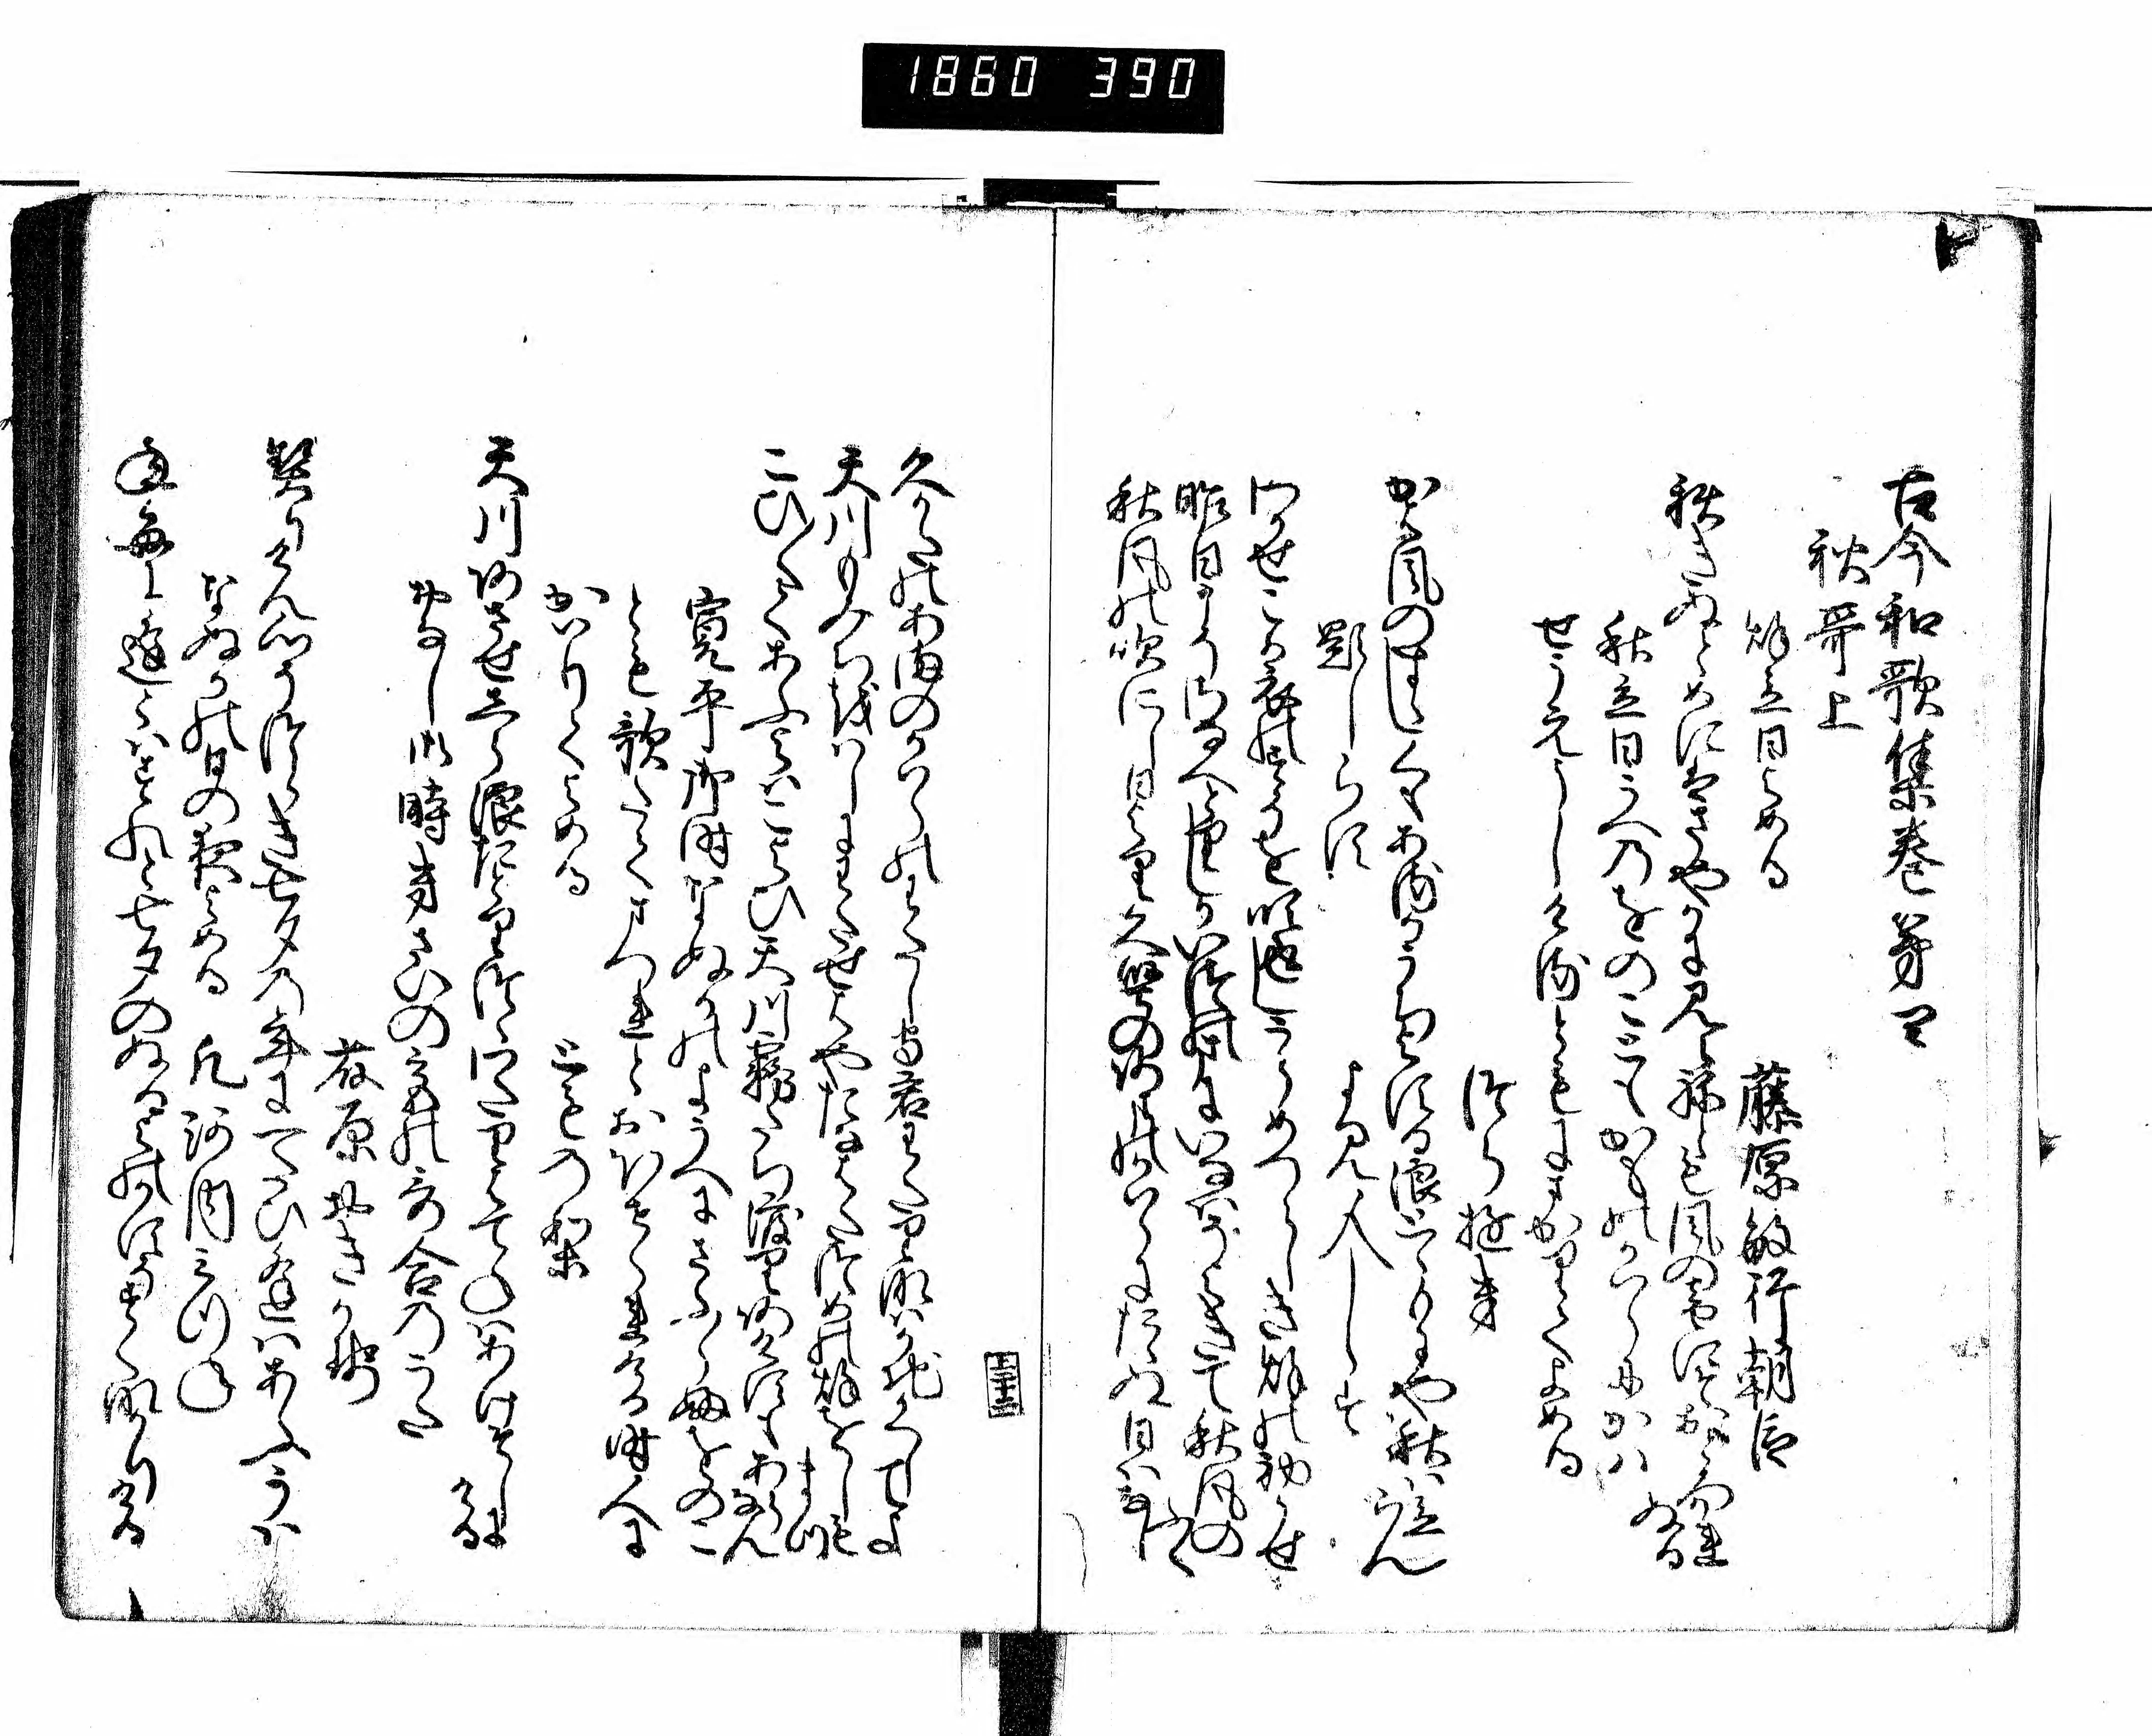 1860 390
古今和歌集巻第四
秋哥上
秋立日よめる
藤原敏行朝臣
秋きぬとめにはさやかに見えねとも風の音にそおとろかれぬる
秋立日うへのをのこともかものかはらにかは
せうえうしけるともにまかりてよめる
つらゆき
かは風のすゝしくもあるかうちよする浪とゝもにや秋は立らん
題しらす
よみ人しらす
わかせこか衣のすそを吹返しうらめつらしき秋の初かせ
昨日こそさなへとりしかいつのまにいなはそよきて秋風の吹
秋風の吹にし日より久堅のあまのかはらにたゝぬ日はなし
久かたのあまのかはらのわたし守君わたりなはかちかくしてよ
天川もみちをはしにわたせはやたなはたつめの秋をしもまつ
こひ〳〵てあふよはこよひ天川霧たち渡りあけすもあらなん
寛平御時なぬかのようへにさふらふをのこ
とも歌たてまつれとおほせられける時人に
かはりてよめる
とものり
天川あさせしら浪たとりつゝわたりはてねはあけそしにける
おなし御時きさいの宮の哥合のうた
藤原おきかせ
契りけん心そつらき七夕の年にひとたひ逢はあふかは
なぬかの日の夜よめる
凡河内みつね
年毎に逢とはすれと七夕のぬるよのかすそすくなかりける